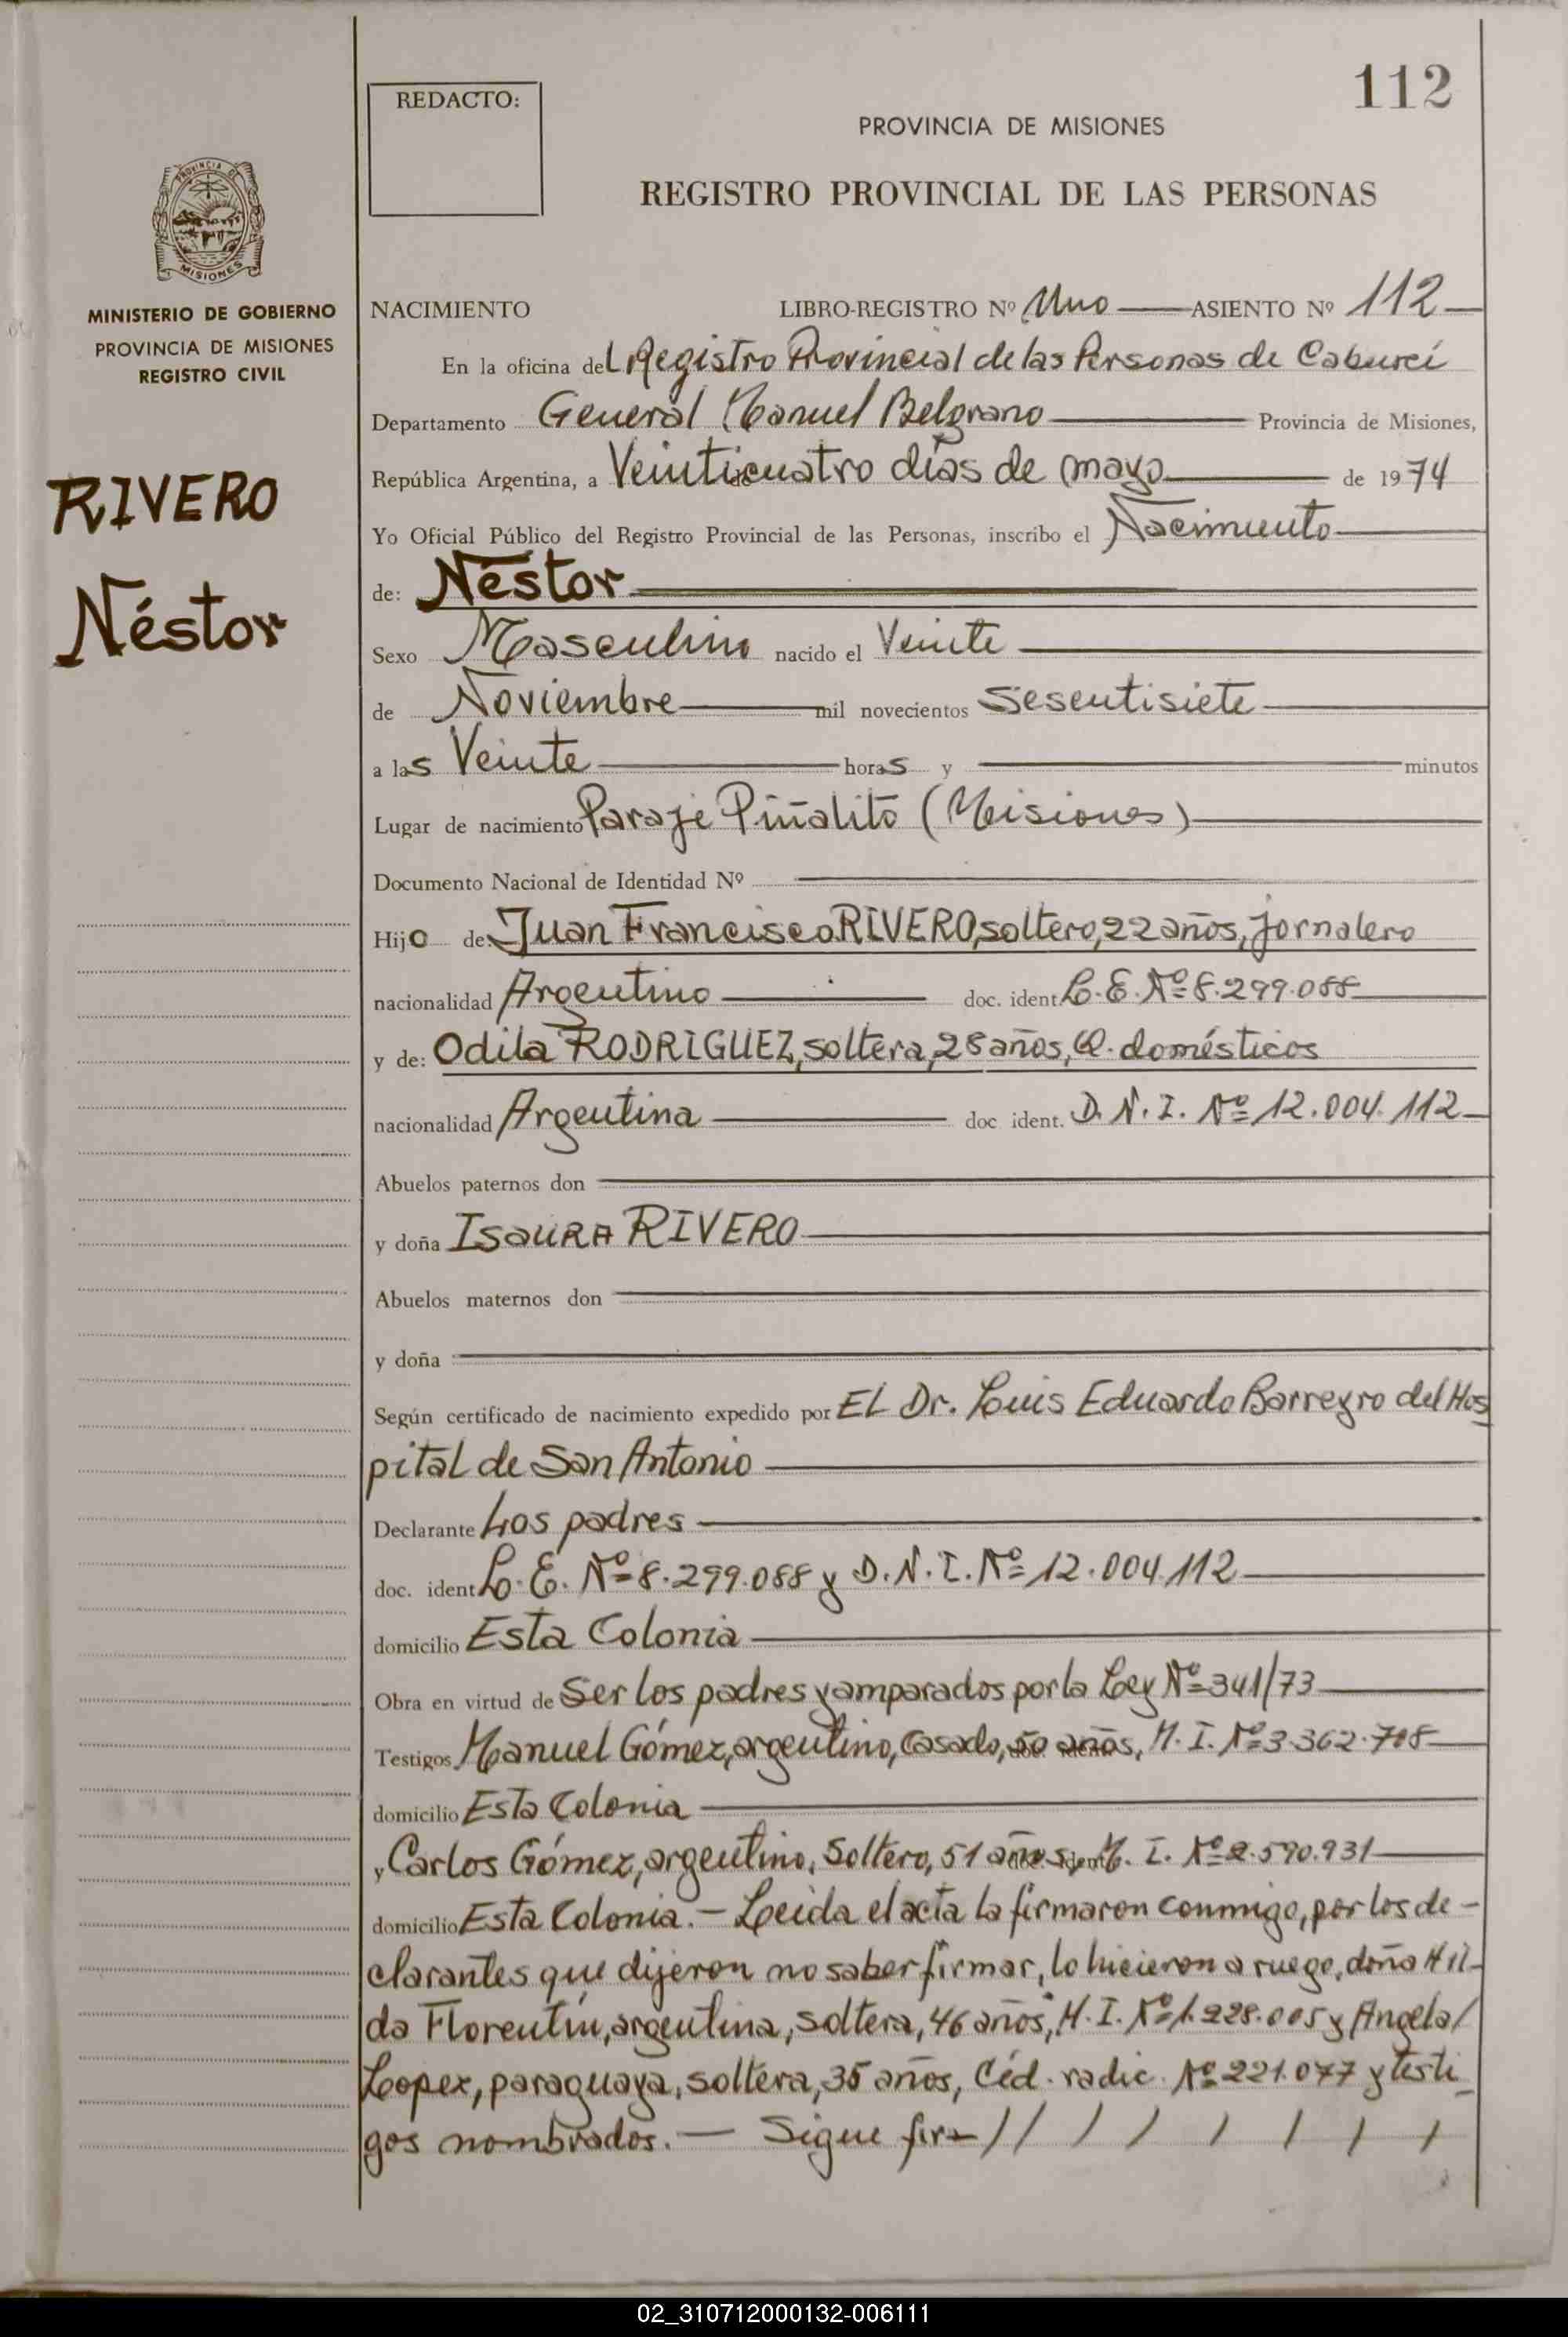 112
REDACTO:
PROVINCIA DE MISIONES
REGISTRO PROVINCIAL DE LAS PERSONAS
PROVINCIA DE
MISIONES
MINISTERIO DE GOBIERNO
PROVINCIA DE MISIONES
REGISTRO CIVIL
RIVERO
Néstor
NACIMIENTO LIBRO-REGISTRO Nº Uno ASIENTO Nº 112
En la oficina del Registro Provincial de las Personas de Caburei
Departamento General Manuel Belgrano Provincia de Misiones,
República Argentina, a Veinticuatro días de mayo de 1974
Yo Oficial Público del Registro Provincial de las Personas, inscribo el Nacimiento
de: Néstor
Sexo Masculino nacido el Veinte
de Noviembre mil novecientos Sesentisiete
a las Veinte horas y minutos
Lugar de nacimiento Paraje Piñalito (Misiones)
Documento Nacional de Identidad Nº
Hijo de: Juan Francisco RIVERO, soltero, 22 años, jornalero
nacionalidad Argentino doc. ident. L. E. Nº 8.299.088
y de: Odila RODRIGUEZ, soltera, 28 años, Q. domésticos
nacionalidad Argentina doc ident. D. N. I. Nº 12.004.112
Abuelos paternos don
y doña ISAURA RIVERO
Abuelos maternos don
y doña
Según certificado de nacimiento expedido por El Dr. Luis Eduardo Barreyro del Hos
pital de San Antonio
Declarante Los padres
doc. ident. L. E. Nº 8.299.088 y D. N. I. Nº 12.004.112
domicilio Esta Colonia
Obra en virtud de Ser los padres y amparados por la Ley Nº 341/73
Testigos Manuel Gómez, argentino, casado, 50 años, M. I. Nº 3.362.708
domicilio Esta Colonia
y Carlos Gómez, argentino, Soltero, 51 años, M. I. Nº 2.590.931
domicilio Esta Colonia. - Leida el acta la firmaron conmigo, por los de-
clarantes que dijeron no saber firmar, lo hicieron a ruego, doña Hil-
da Florentín, argentina, soltera, 46 años, M. I. Nº 1.228.005 y Angela/
Lopez, paraguaya, soltera, 35 años, Céd. radic. Nº 221.077 y testi
gos nombrados. — Sigue fir- // / / / / / /
02_310712000132-006111